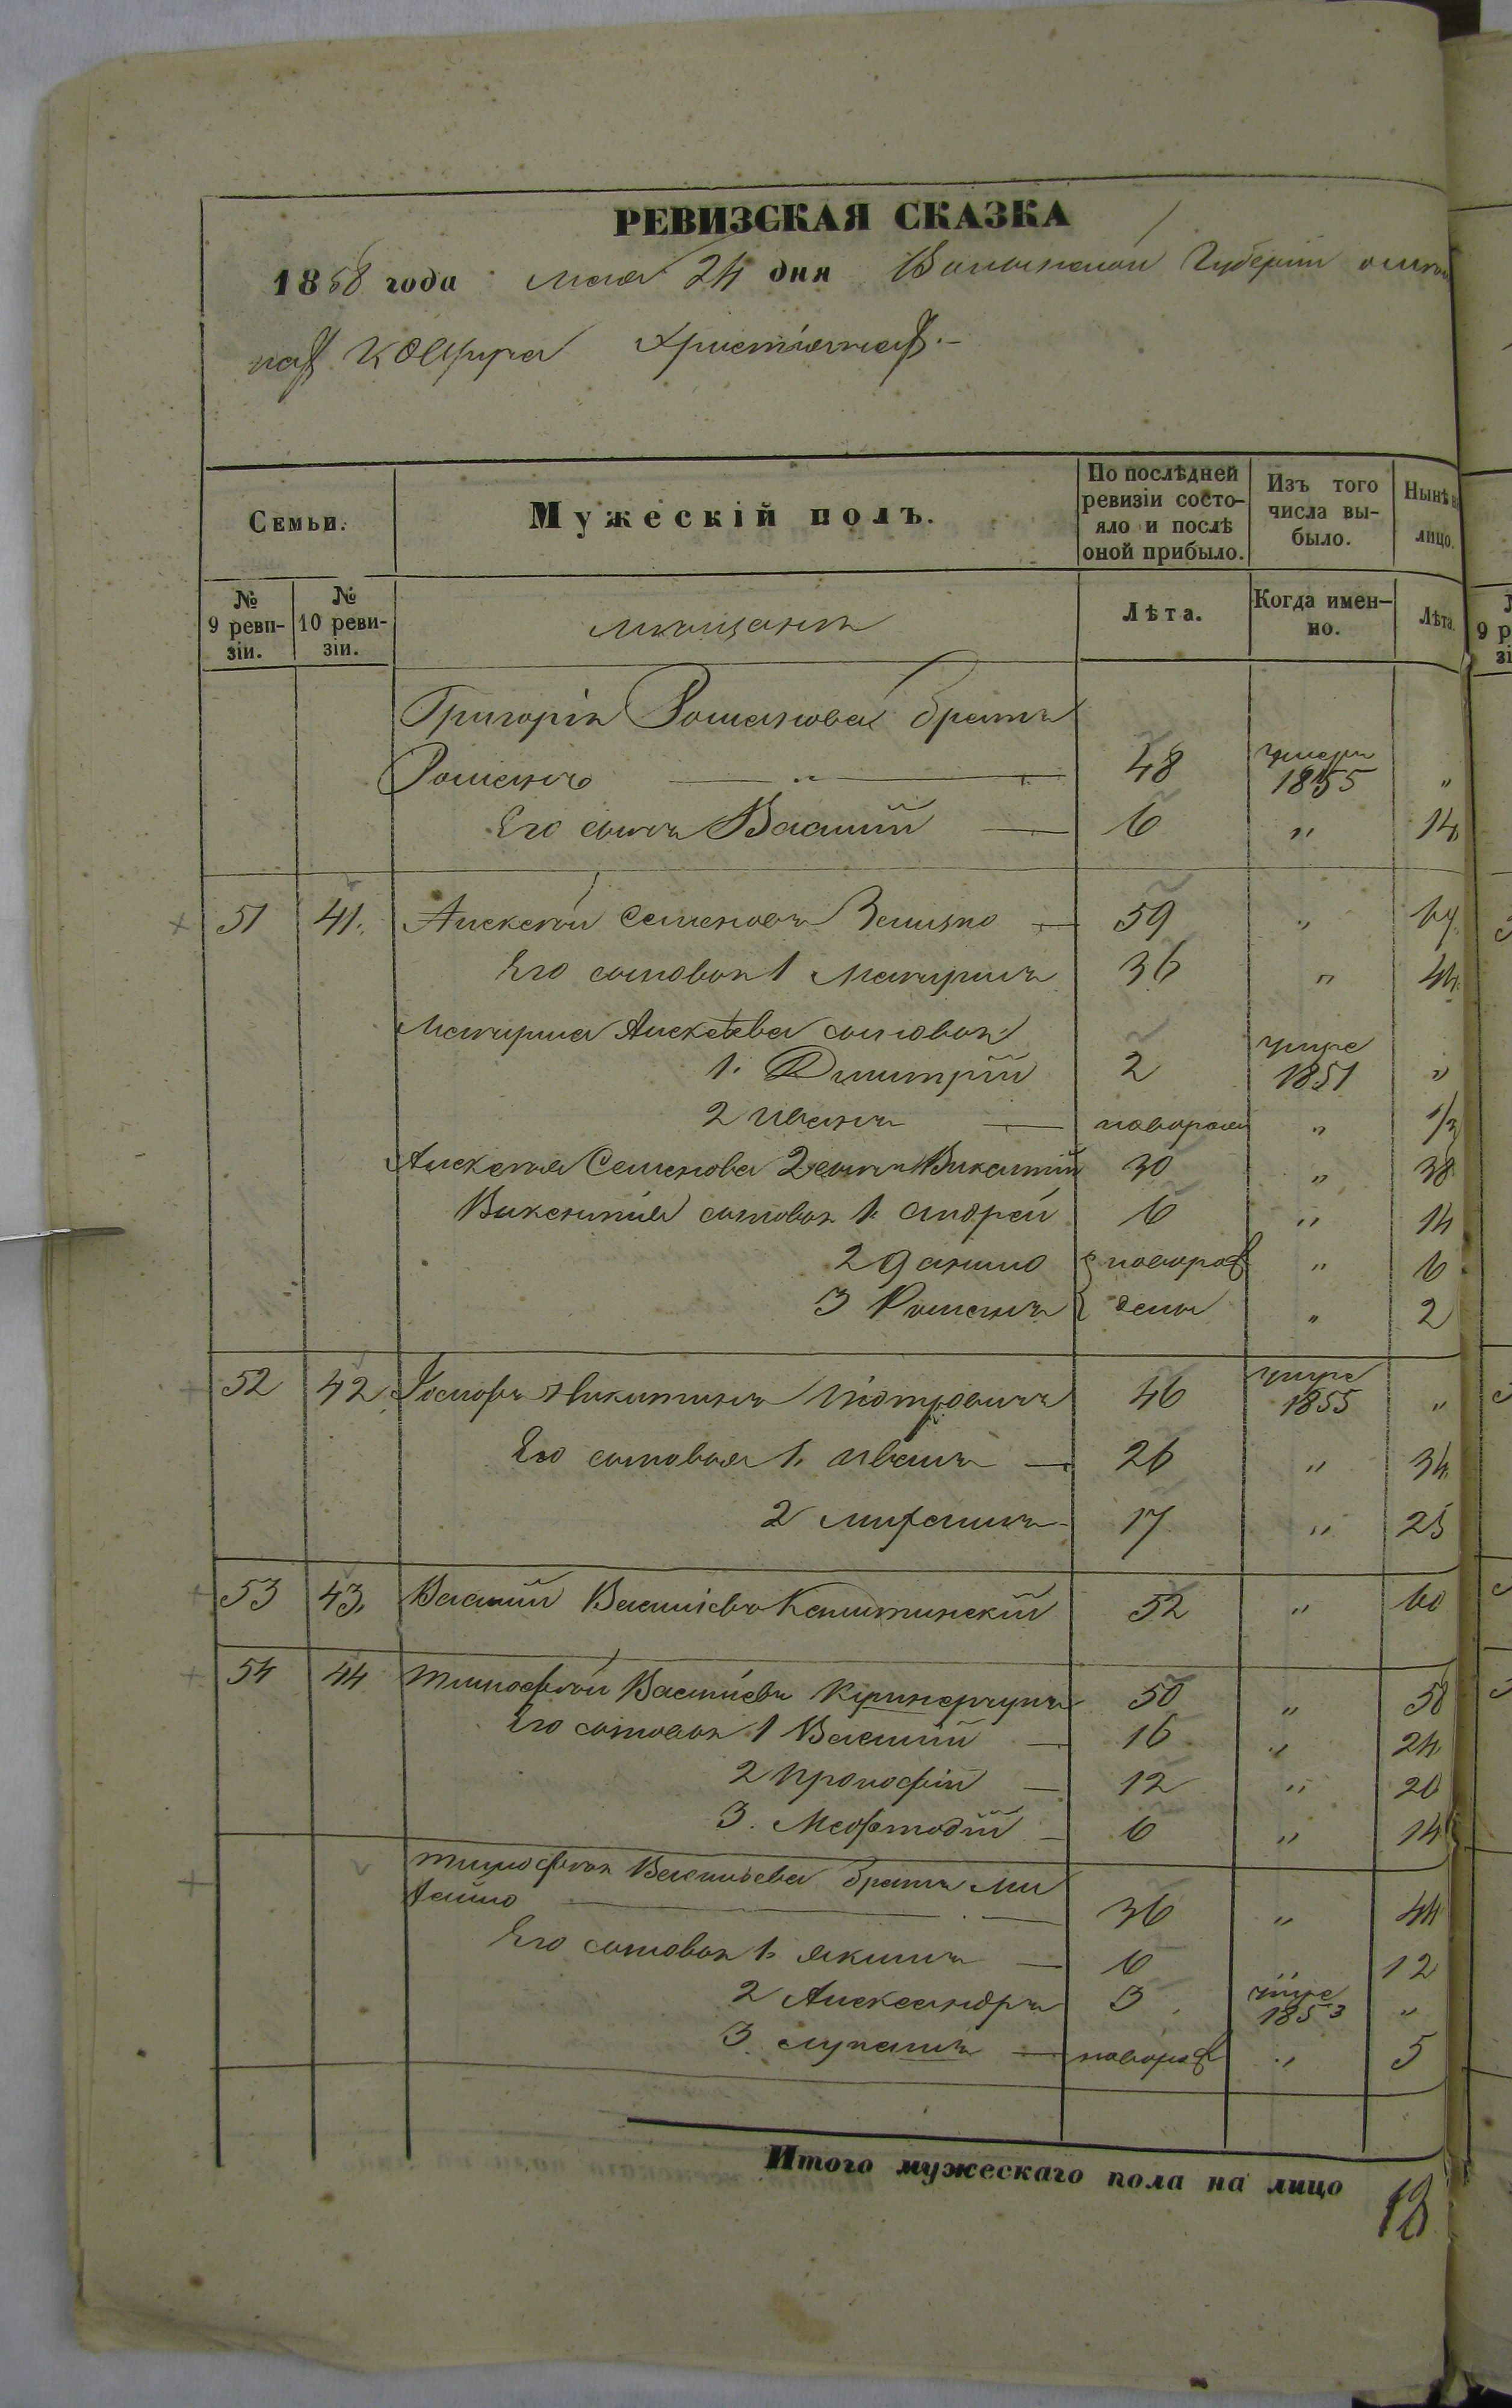 РЕВИЗСКАЯ СКАЗКА
1858 года мая 24 дня Волынской Губернии
Христіянах.-
Семьи. Мужескій полъ. По послѣдней ревизіи состо-яло и послѣ оной прибыло. Изъ того числа вы-было. Нынѣ лицо.
№ 9 реви-зіи. № 10 реви-зіи. мѣщанъ Лѣта. Когда имен-но. Лѣта.
Григорія Романова братъ
Романъ 48 умеръ 1855 „
Его сынъ Василій 6 „ 14
51 41. Алексѣй Семеновъ 59 „ 67
Его сыновья 1 36 „ 44
Алексѣева сыновья
1. Димитрій 2 умре 1851 „
2 иванъ новорожд „
Алексѣя Семенова 2 сынъ Викентій 30 „ 38
Викентія сыновья 1. андрей 6 „ 14
2 данило новорож „ 6
3 Романъ дены „ 2
52 42 Іосифъ Никитинъ 46 умре 1855 „
Его сыновья 1. иванъ 26 „ 34
2 михаилъ 17 „ 25
53 43. Василій Васильевъ 52 „ 60
54 44 тимофѣй Васильевъ 50 „ 58
Его сыновья 1 Василій 16 „ 24
2 прокофій 12 „ 20
3. Мефтодій 6 „ 14
тимофѣя Васильева братъ Ми
хайло 36 „ 44
Его сыновья 1. якимъ 6 „ 12
2 Александръ 3 умре 1853 „
3. лукашъ новорож „ 5
Итого мужескаго пола на лицо 18
9 р
зі